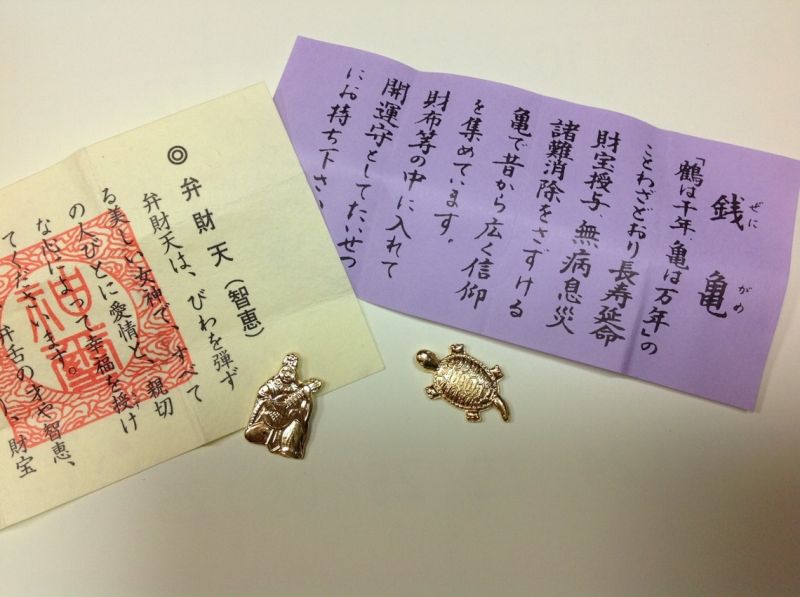 銭亀
ぜにがめ
「鶴は千年、亀は万年」の
ことわざどおり長寿延命
財宝授与、無病息災
諸難消除をさずける
亀で昔から広く信仰
を集めています。
財布等の中に入れて
開運守としてたいせつ
にお持ち下さい
◎弁財天(智恵)
弁財天は、びわを弾ず
る美しい女神で、すべて
の人びとに愛情と、親切
な心によって幸福を授け
てくださいます。
弁舌の才や智恵、
財宝